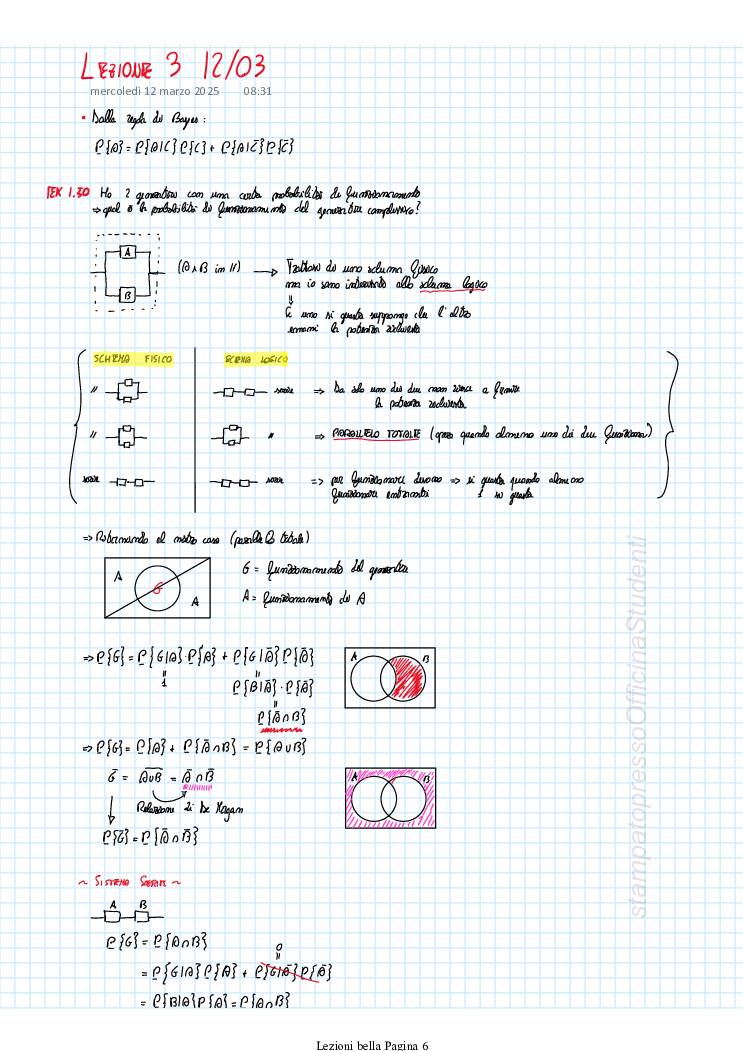 LEZIONE 3 12/03
mercoledì 12 marzo 2025 08:31
• Dalla regola di Bayes:
P{A} = P{A|C}P{C} + P{A|C̄}P{C̄}
1.30 Ho 2 generatori con una certa probabilità di funzionamento
⇒ qual è la probabilità di funzionamento del generatore complessivo?
A
B
(A∧B in //) → Trattasi di uno schema fisico
ma io sono interessato allo schema logico
⇓
se uno si guasta suppongo che l'altro
la potenza richiesta
SCHEMA FISICO SCHEMA LOGICO
// serie ⇒ Da solo uno dei due non riesce a fornire
la potenza richiesta
// // ⇒ PARALLELO TOTALE (opera quando almeno uno dei due funziona)
serie serie ⇒ per funzionare devono ⇒ si guasta quando almeno
funzionare entrambi 1 si guasta
⇒ Ritornando al nostro caso (parallelo totale)
A
G
Ā
G = funzionamento del generatore
A = funzionamento di A
⇒ P{G} = P{G|A}·P{A} + P{G|Ā}P{Ā}
A B
1
P{B|Ā}·P{Ā}
P{Ā∩B}
⇒ P{G} = P{A} + P{Ā∩B} = P{A∪B}
Ḡ = A∪B = Ā∩B̄
A B
Relazione di De Morgan
P{Ḡ} = P{Ā∩B̄}
~ SISTEMA SERIE ~
A B
P{G} = P{A∩B}
0
= P{G|A}P{A} + P{G|Ā}P{Ā}
= P{B|A}P{A} = P{A∩B}
stampatopressoOfficinaStudenti
Lezioni bella Pagina 6